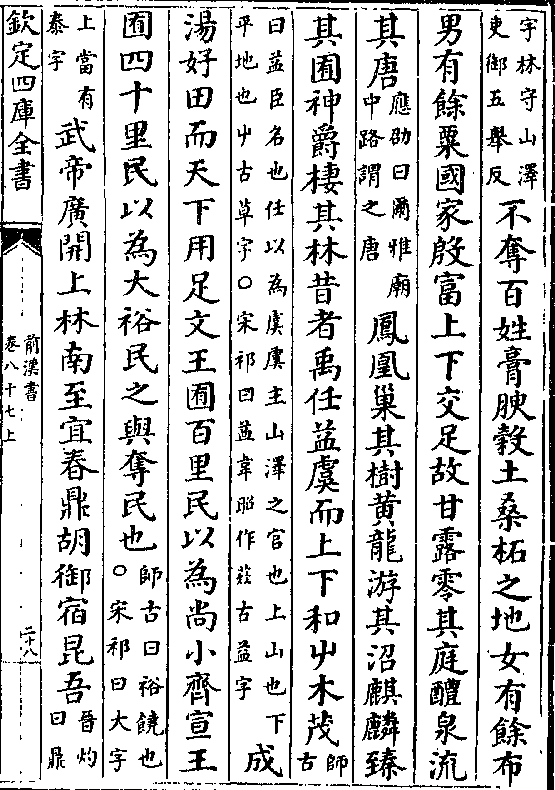 宇林守山澤
吏御五舉反
不奪百姓膏腴穀土桑柘之地女有餘布
男有餘粟國家殷富上下交足故甘露零其庭醴泉流
其唐
應劭曰爾雅廟
中路謂之唐
鳳凰巢其樹黄龍游其沼麒麟臻
其囿神爵棲其林昔者禹任益虞而上下和屮木茂
師
古
曰益臣名也任以為虞虞主山澤之官也上山也下
平地也屮古草字○宋祁曰益韋昭作𦽿古益字
成
湯好田而天下用足文王囿百里民以為尚小齊宣王
囿四十里民以為大裕民之與奪民也
師古曰裕饒也
○宋祁曰大字
上當有
泰字
武帝廣開上林南至宜春鼎胡御宿昆吾
晉灼
曰鼎
欽定四庫全書
前漢書
卷八十七上
二十八